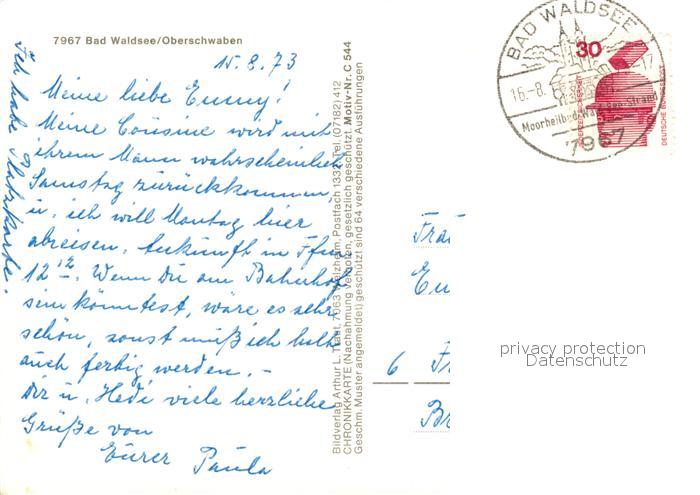 7967 Bad Waldsee/Oberschwaben
15.8.73
Meine liebe Enny!
Meine Cousine wird mit
ihrem Mann wahrscheinlich
Samstag zurückkommen
u. ich will Montag hier
abreisen. Ankunft in Ffm
12 12. Wenn Du am Bahnhof
sein könntest, wäre es sehr
schön, sonst muß ich halt
auch fertig werden. –
Dir u. Hedi viele herzliche
Grüße von
Eurer Paula
Ich habe Platzkarte.
Bildverlag Arthur L. 7063 Welzheim, Postfach 1332, Tel. (07182) 412
CHRONIKKARTE (Nachahmung verboten, gesetzlich geschützt. Motiv-Nr. C 544
Geschm. Muster angemeldet) geschützt sind 64 verschiedene Ausführungen
BAD WALDSEE
16.-8.
-17
Moorheilbad
7967
30
DEUTSCHE BUNDESPOST
6
privacy protection
Datenschutz